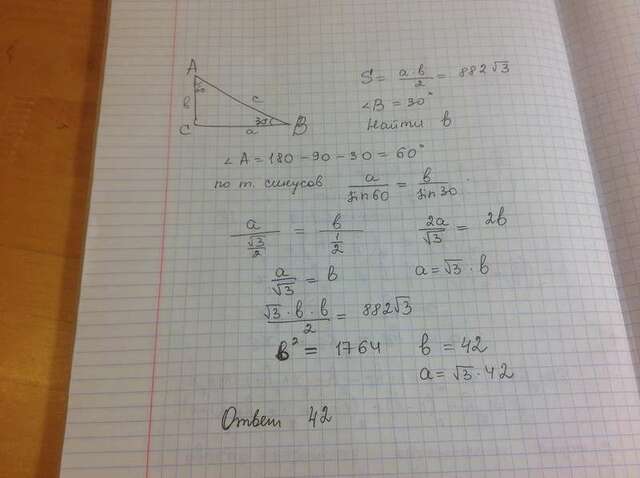 A
60
в
c
C
a
30°
B
S = a·b/2 = 882√3
∠B = 30°
Найти в
∠A = 180 - 90 - 30 = 60°
по т. синусов a/sin60 = в/sin30
a/(√3/2) = в/(1/2)
2a/√3 = 2в
a/√3 = в
a = √3 · в
√3 · в · в/2 = 882√3
в² = 1764
в = 42
a = √3 · 42
Ответ 42